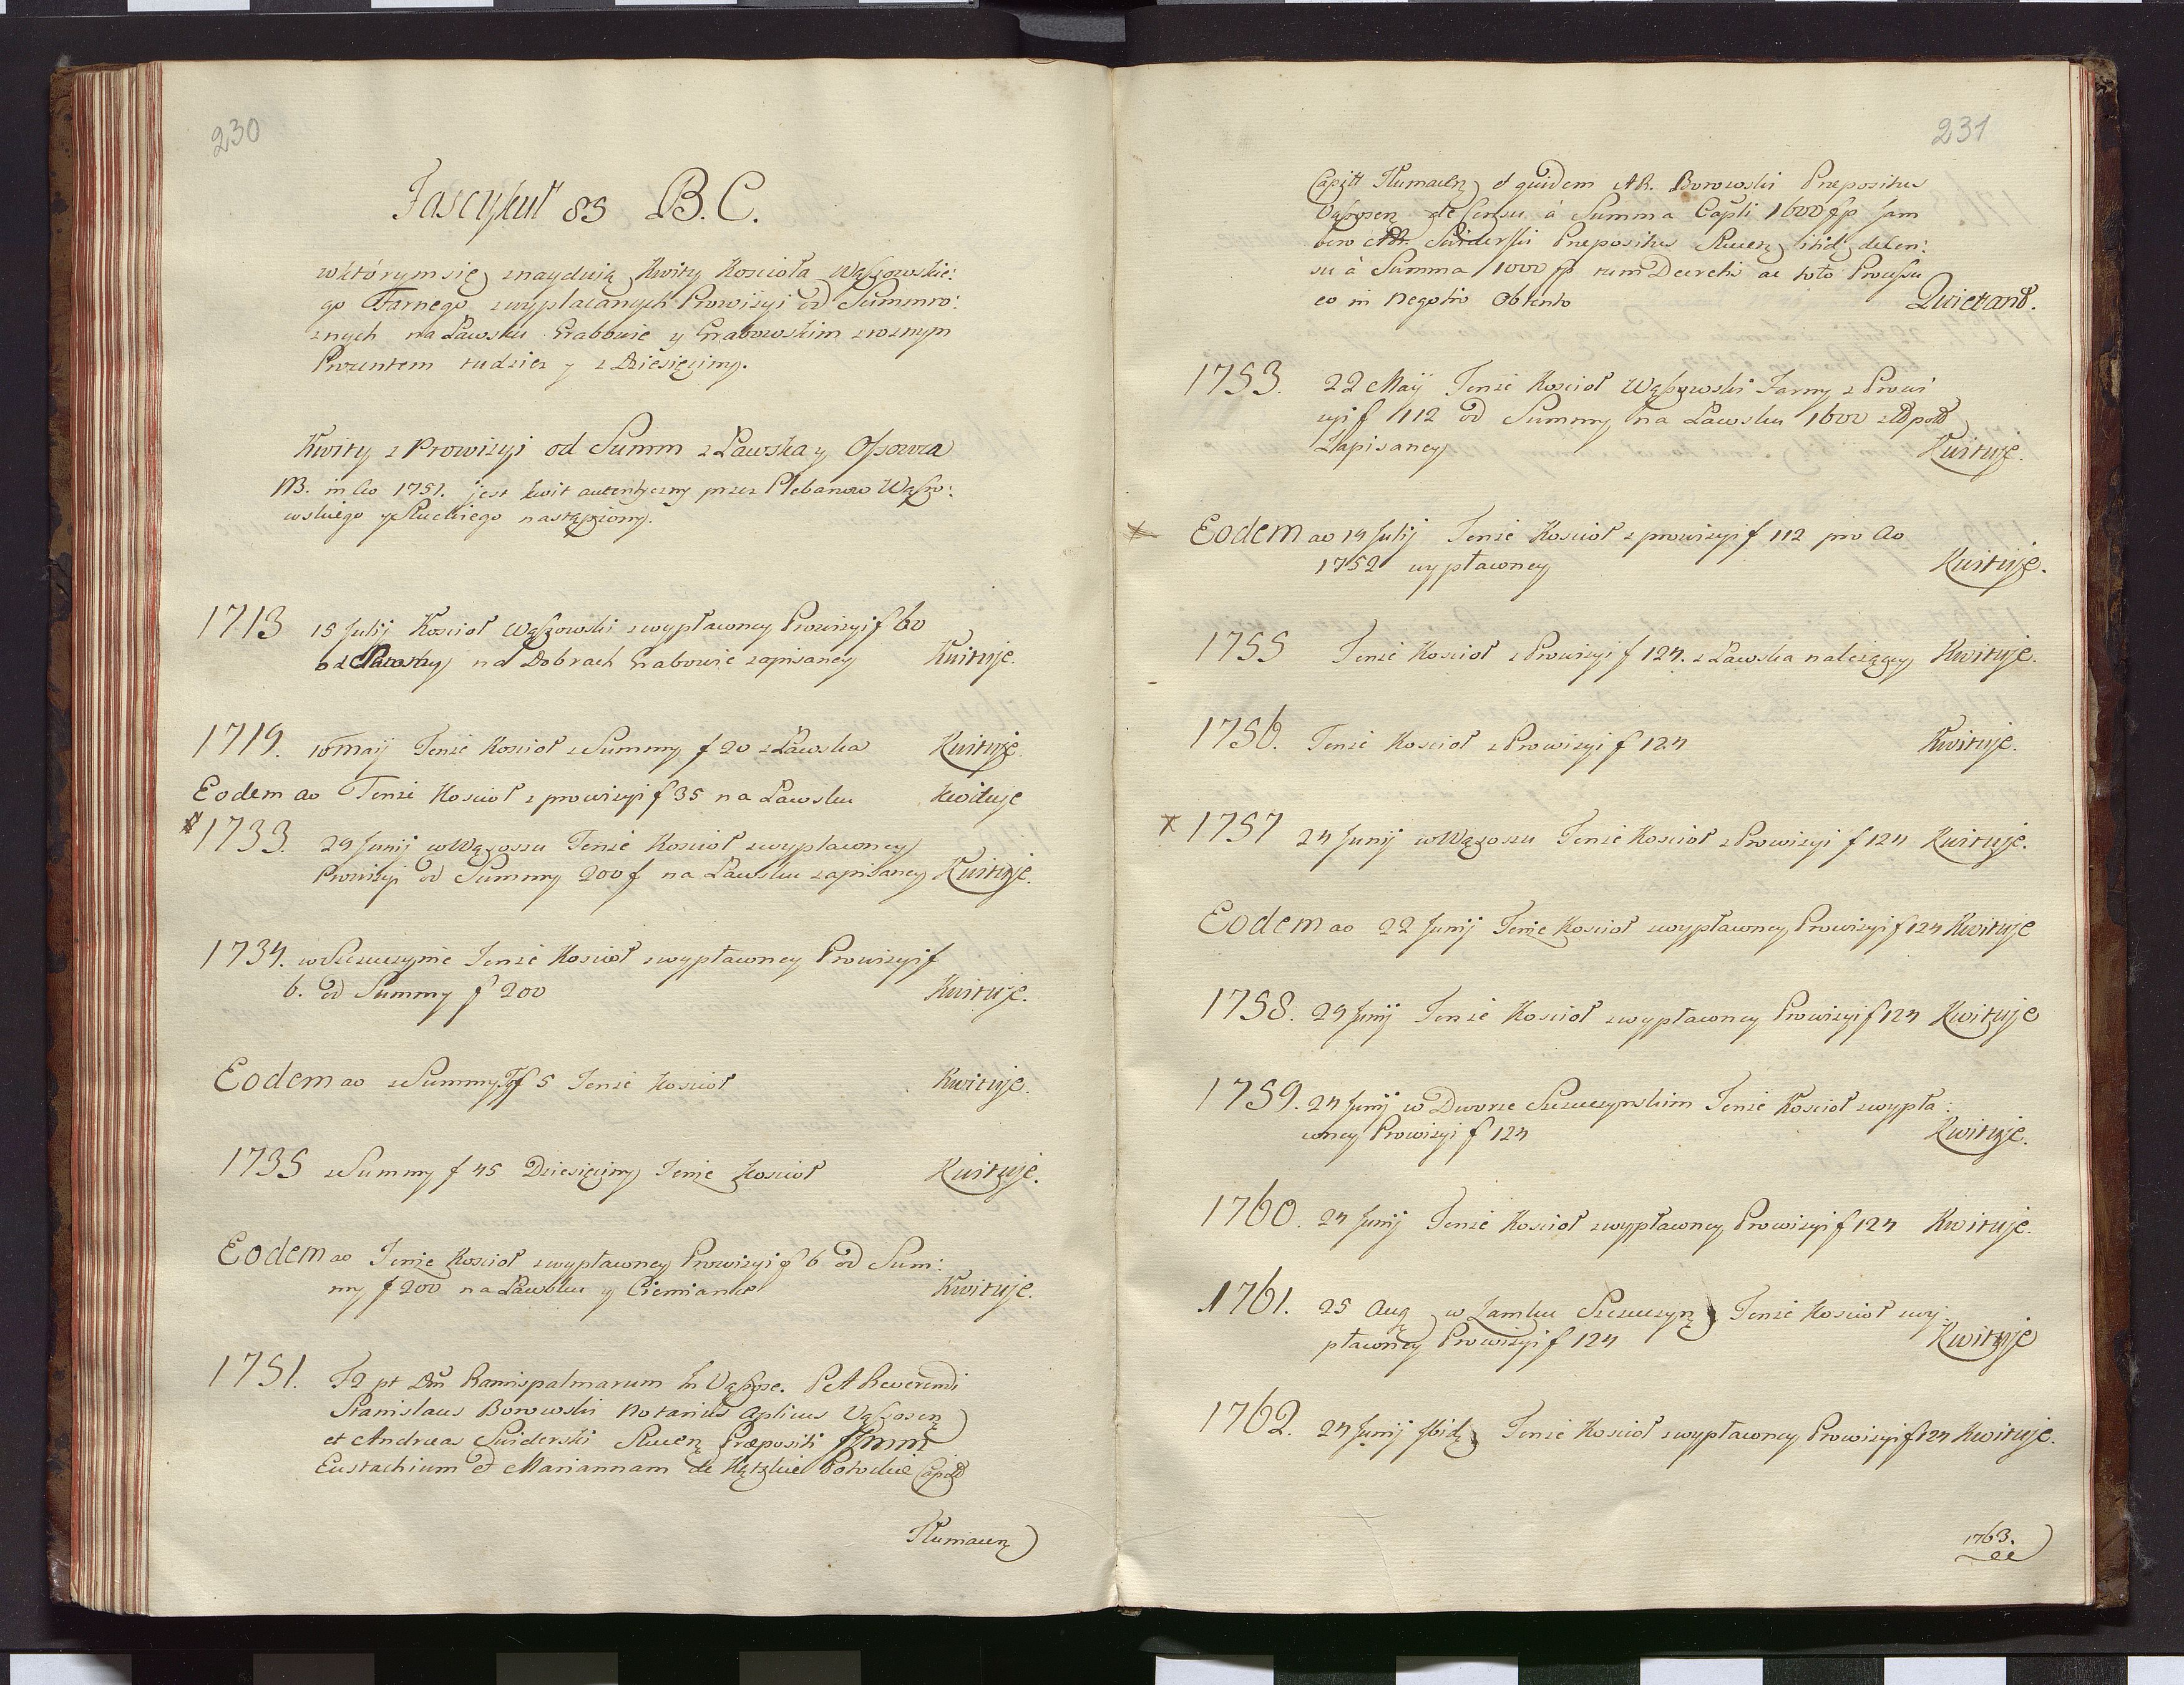 230
Fascykuł 83 B.C.
w którym się znayduią Kwity Kościoła Wąsowskie:
go Farnego, z wypłacanych Prowizyi od Summ ro:
znych na Ławsku Grabowie y Grabowskim z roznym
Prozentem tudziesz y z Dziesięciny.
Kwity z Prowizyi od Summ z Ławska y Ossowca
NB. in Ao 1751. jest kwit autentyczny przez Plebanow Wąso:
wskiego y Słuckiego nastąpiony.
1713 15 Julij Kościoł Wąsowski z wypłaconey Prowizyi f 60
na Dobrach Grabowie zapisaney Kwituje.
1719. 10 Maij Tenże Kościoł z Summy f 20 z Ławska Kwituje.
Eodem ao Tenże Kościoł z prowizyi f 35 na Ławsku kwituje
1733. 29 Junij w Wąsoszu Tenże Kościoł z wypłaconey
Prowizyi od Summy 200 f na Ławsku zapisaney Kwituje.
1734. w Szczuczynie Tenże Kościoł z wypłaconey Prowizyi f
6. od Summy f 200 Kwituje.
Eodem ao z Summy f 5 Tenże Kościoł Kwituje.
1735 z Summy f 45 Dziesięciny Tenże Kościoł Kwituje.
Eodem ao Tenże Kościoł z wypłaconey Prowizyi f 6 od Sum:
my f 200 na Ławsku y Ciemiance Kwituje.
1751. F2 pt Dm Ramispalmarum in Vąsosze. P A Reverendi
Stanislaus Borowski Notarius Aplicus Vąsoszen
et Andreas Swiderski Słucen Præpositi
Eustachium et Mariannam de Kątskie Potockie Capit
Tłumacen
231
Capitt Tłumacen et quidem AR. Borowski Præpositus
Vąsoszen de Censu à Summa Capli 1600 fp jam
vero AR. Swiderski Præpositus Słucen itid de Cen:
su à Summa 1000 fp cum Decretis ac toto Processu
eo in Negotio Obtento Quietant.
1753. 22 Maij Tenże Kościoł Wąsowski Farny z Prowi
zyi f 112 od Summy na Ławsku 1600 złł pol
Zapisaney Kwituje.
Eodem ao 19 Julij Tenże Kościoł z prowizyi f 112 pro Ao
1752 wypłaconey Kwituje.
1755 Tenże Kościoł z Prowizyi f 124. z Ławska należącey Kwituje.
1756. Tenże Kościoł z Prowizyi f 124 Kwituje.
1757 24 Junij w Wąsoszu Tenże Kościoł z Prowizyi f 124 Kwituje.
Eodem ao 22 Junij Tenże Kościoł z wypłaconey Prowizyi f 124 Kwituje
1758. 24 Junij Tenże Kościoł z wypłaconey Prowizyi f 124 Kwituje
1759. 24 Junij w Dworze Szczuczynskim Tenże Kościoł z wypła:
coney Prowizyi f 124 Kwituje.
1760. 24 Junij Tenże Kościoł z wypłaconey Prowizyi f 124 Kwituje.
1761. 25 Aug w Zamku Szczuczyn Tenże Kościoł z wy:
płaconey Prowizyi f 124 Kwituje
1762. 24 Junij Ibid Tenże Kościoł z wypłaconey Prowizyi f 124 Kwituje.
1763.